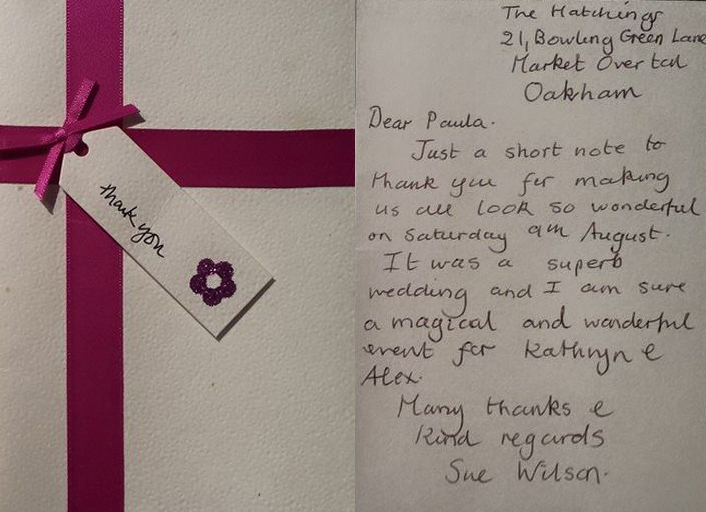 thank you
The Hatchings
21, Bowling Green Lane
Market Overton
Oakham
Dear Paula.
Just a short note to
thank you for making
us all look so wonderful
on Saturday 9th August.
It was a superb
wedding and I am sure
a magical and wonderful
event for Kathryn &
Alex.
Many thanks &
Kind regards
Sue Wilson.